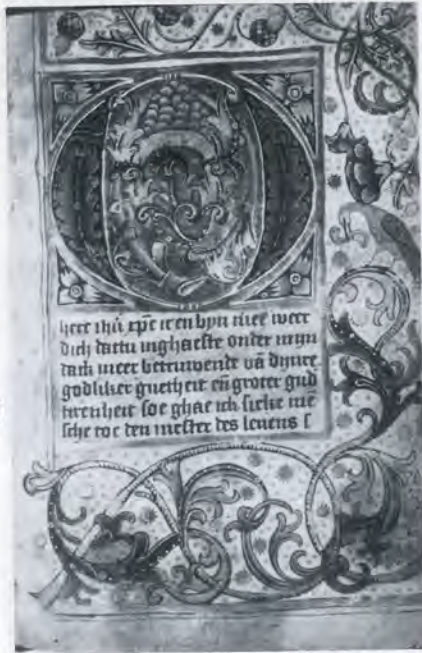 O
here ihū xpē ic en byn niet weer
dich dattu inghaeste onder myn
dack meer betruwende vā dynre
godliker guetheit eñ groter gud
tirenheit soe ghae ich sieke me
sche toe den mester des levens s